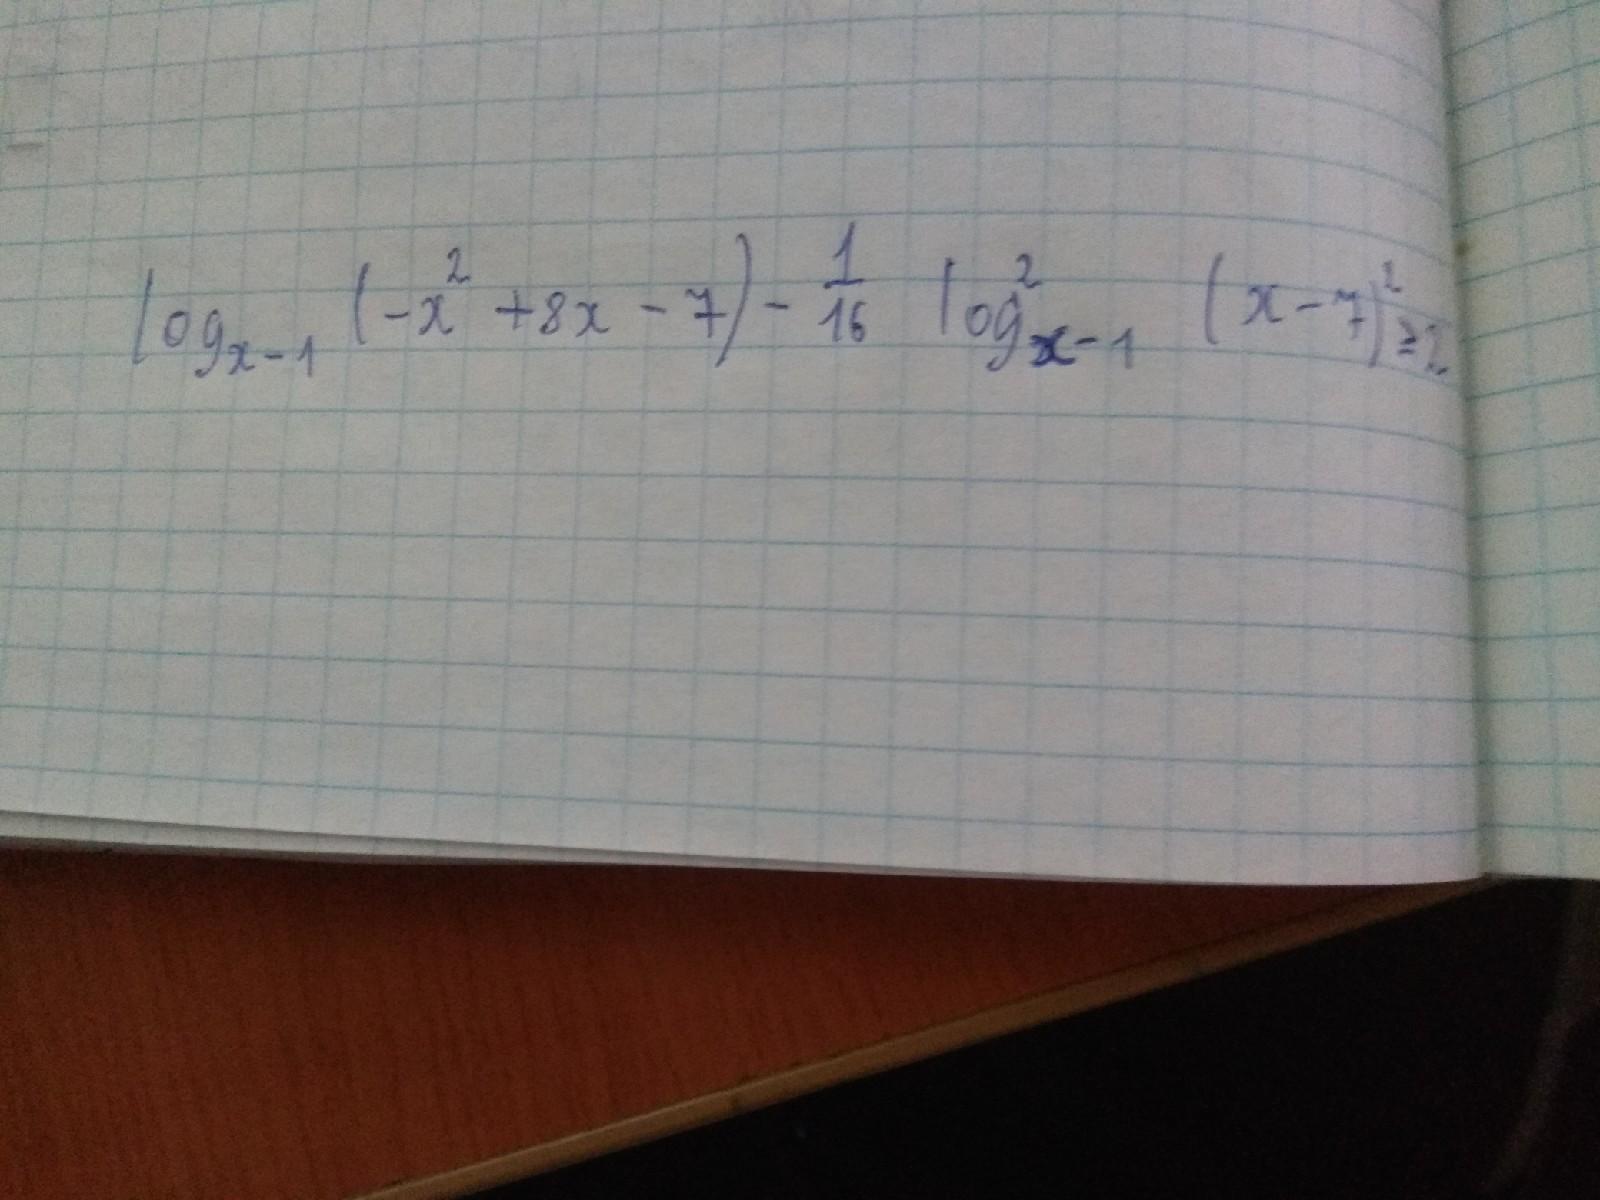 log_{x-1} (-x² + 8x - 7) - 1/16 log²_{x-1} (x - 7)² ≥ 2